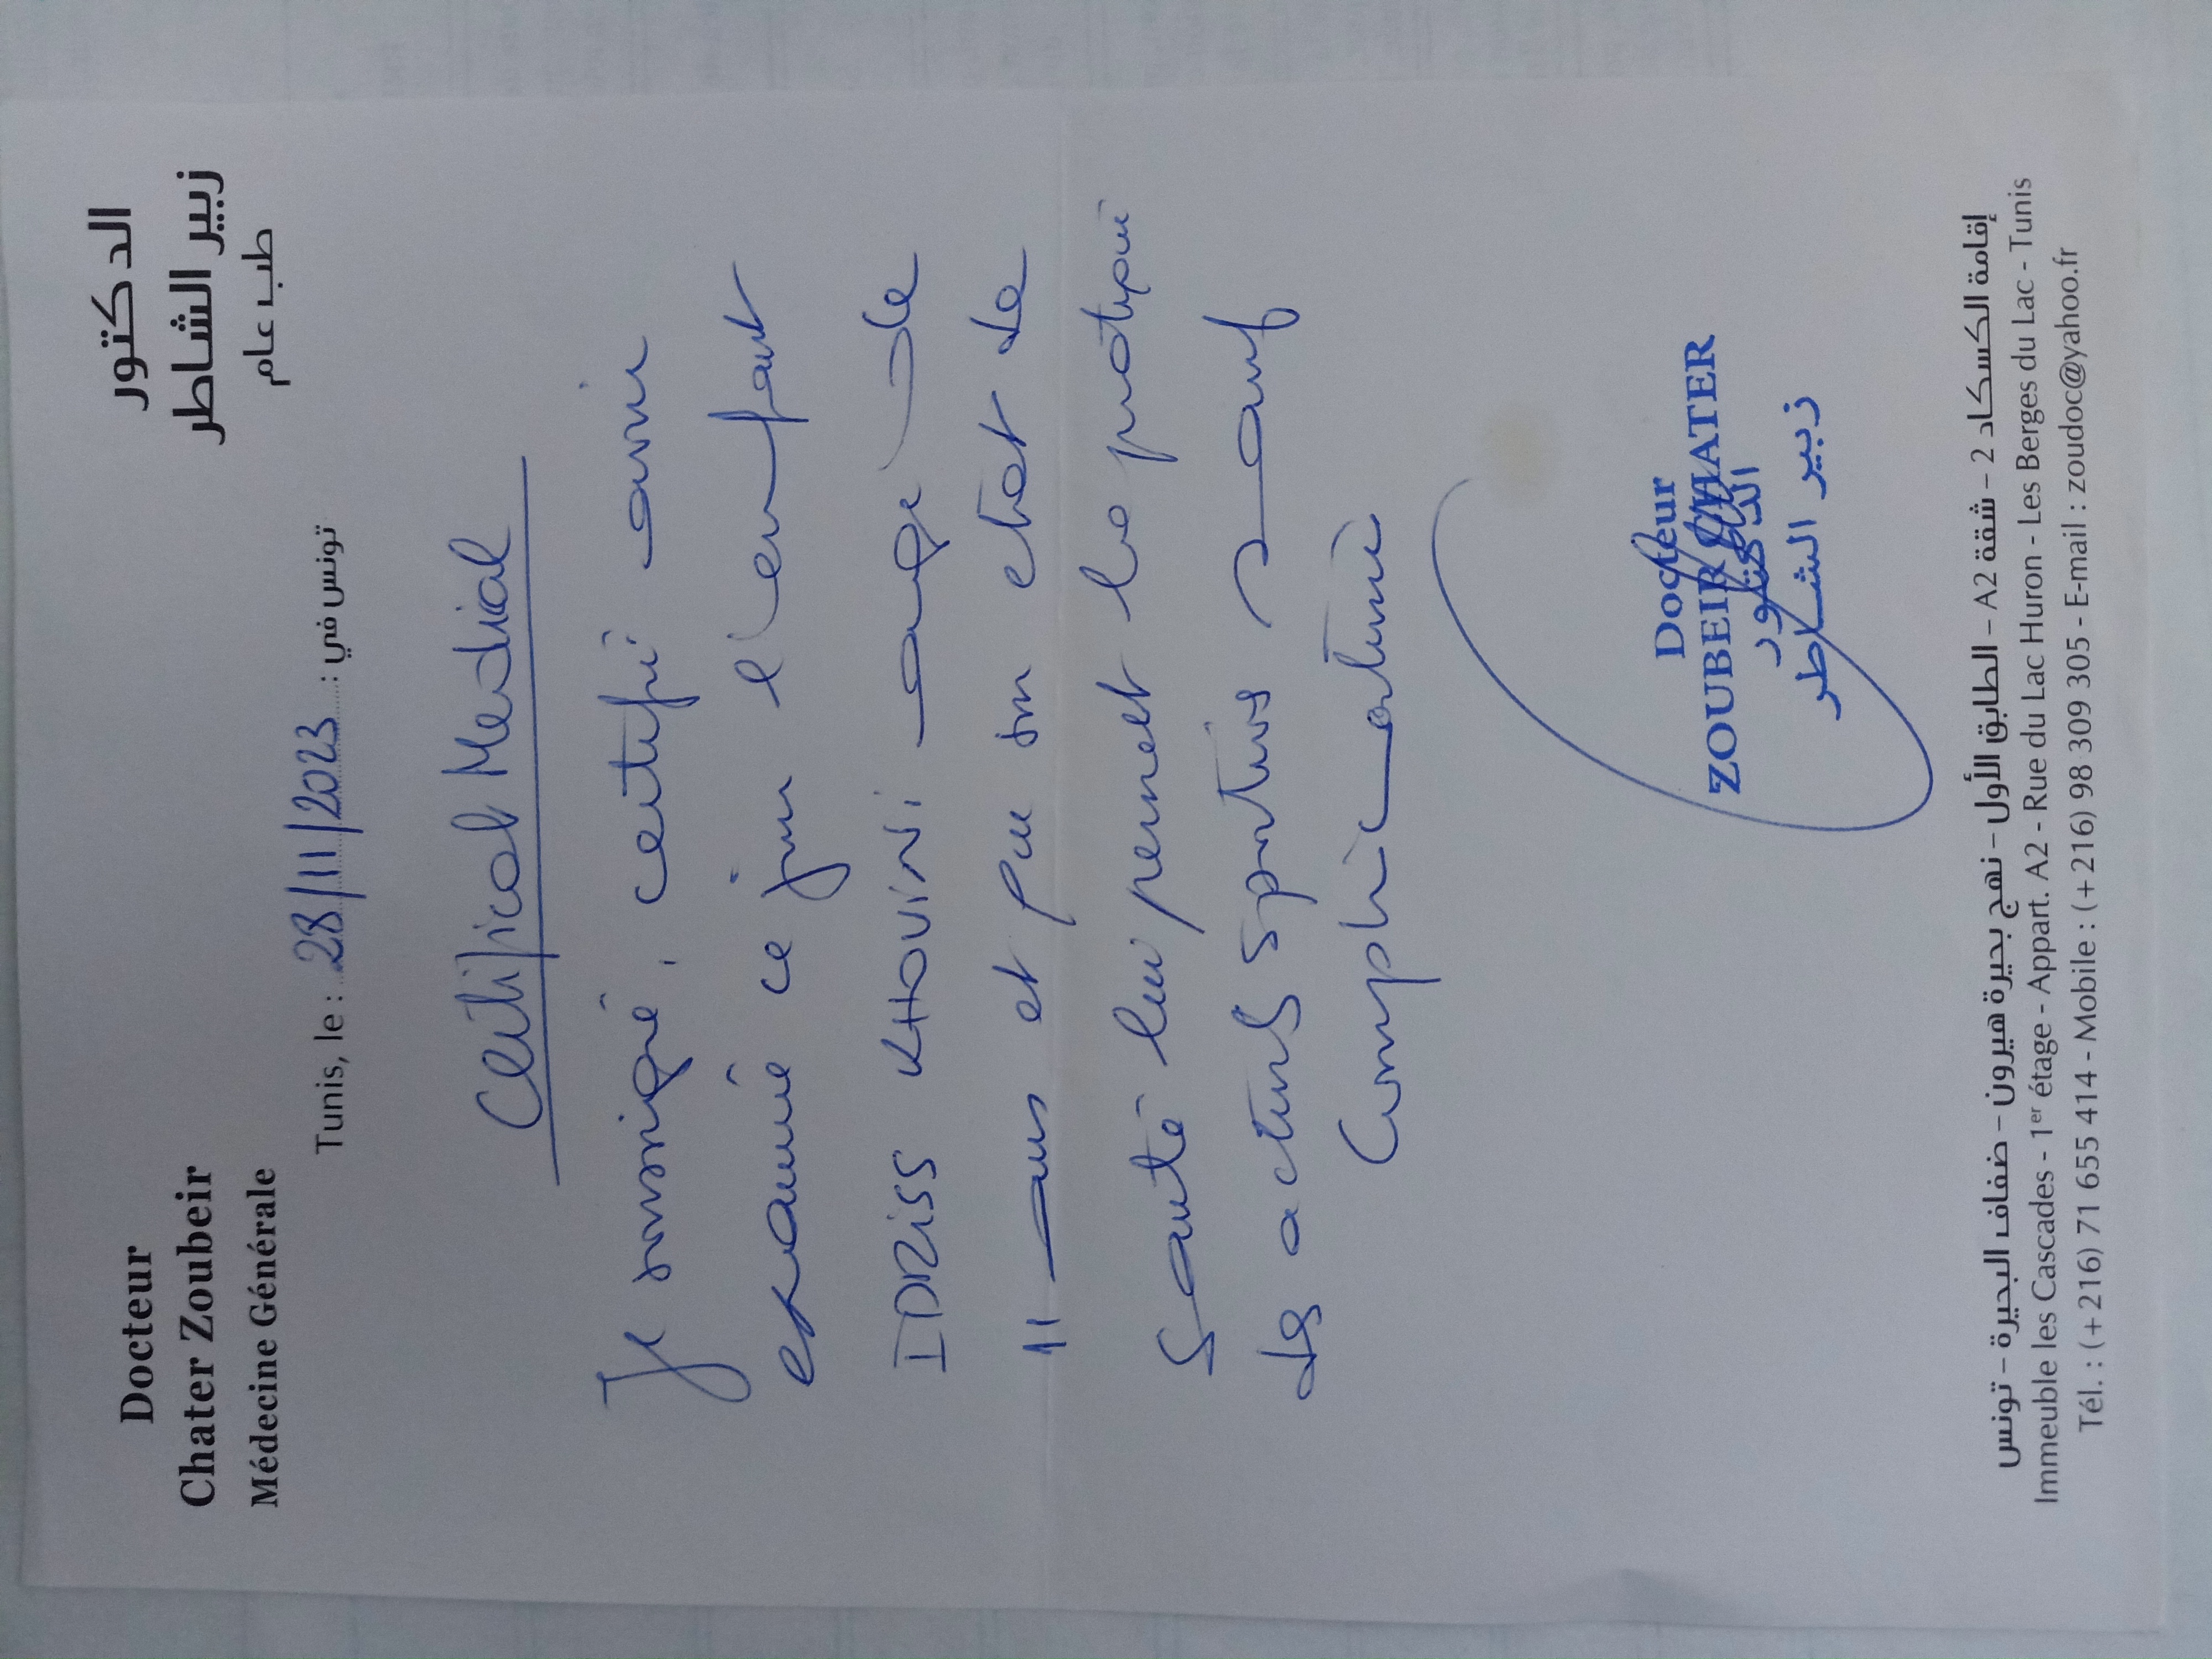 Docteur
Chater Zoubeir
Médecine Générale
الدكتور
زبير الشاطر
طب عام
Tunis, le : 28/11/2023 : تونس في
Certificat Medical
Je soussigné, certifie avoir
examiné ce jour l'enfant
IDRISS KHOUINI agé de
11 ans et que son etat de
santé lui permet la pratique
des acturs sportives sauf
complication
Docteur
ZOUBEIR CHATER
الدكتور
زبير الشاطر
إقامة الكسكاد 2 – شقة A2 – الطابق الأول – نهج بحيرة هيرون – ضفاف البحيرة – تونس
Immeuble les Cascades - 1er étage - Appart. A2 - Rue du Lac Huron - Les Berges du Lac - Tunis
Tél. : (+ 216) 71 655 414 - Mobile : (+ 216) 98 309 305 - E-mail : zoudoc@yahoo.fr